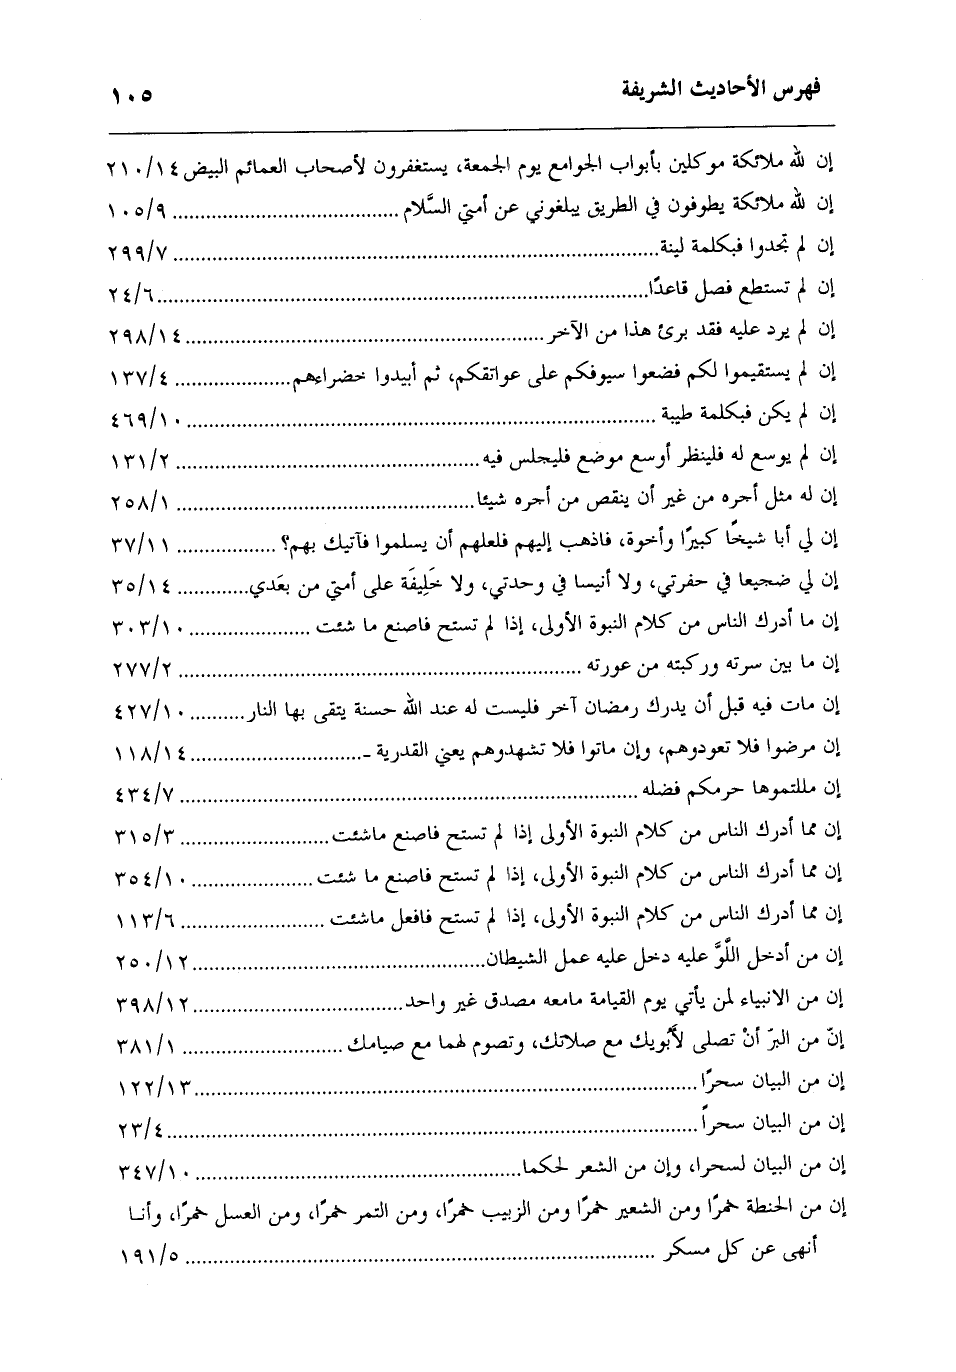 فهرس الأحاديث الشريفة ١٠٥
إن لله ملائكة موكلين بأبواب الجوامع يوم الجمعة، يستغفرون لأصحاب العمائم البيض ٢١٠/١٤
إن لله ملائكة يطوفون في الطريق يبلغوني عن أمتي السَّلام ........................ ١٠٥/٩
إن لم تجدوا فبكلمة لينة ........................ ٢٩٩/٧
إن لم تستطع فصل قاعدًا ........................ ٢٤/٦
إن لم يرد عليه فقد برئ هذا من الآخر ........................ ٢٩٨/١٤
إن لم يستقيموا لكم فضعوا سيوفكم على عواتقكم، ثم أبيدوا خضراءهم ................ ١٣٧/٤
إن لم يكن فبكلمة طيبة ........................ ٤٦٩/١٠
إن لم يوسع له فلينظر أوسع موضع فليجلس فيه ........................ ١٣١/٢
إن له مثل أجره من غير أن ينقص من أجره شيئا ........................ ٢٥٨/١
إن لي أبا شيخًا كبيرًا وأخوة، فاذهب إليهم فلعلهم أن يسلموا فآتيك بهم؟ ............ ٣٧/١١
إن لي ضجيعا في حفرتي، ولا أنيسا في وحدتي، ولا خَلِيفَة على أمتي من بعَدي ............ ٣٥/١٤
إن ما أدرك الناس من كلام النبوة الأولى، إذا لم تستح فاصنع ما شئت ................ ٣٠٣/١٠
إن ما بين سرته وركبته من عورته ........................ ٢٧٧/٢
إن مات فيه قبل أن يدرك رمضان آخر فليست له عند الله حسنة يتقى بها النار ......... ٤٢٧/١٠
إن مرضوا فلا تعودوهم، وإن ماتوا فلا تشهدوهم يعني القدرية - .................... ١١٨/١٤
إن مللتموها حرمكم فضله ........................ ٤٣٤/٧
إن مما أدرك الناس من كلام النبوة الأولى إذا لم تستح فاصنع ماشئت ................ ٣١٥/٣
إن مما أدرك الناس من كلام النبوة الأولى، إذا لم تستح فاصنع ما شئت ................ ٣٥٤/١٠
إن مما أدرك الناس من كلام النبوة الأولى، إذا لم تستح فافعل ماشئت ................ ١١٣/٦
إن من أدخل اللَّوَّ عليه دخل عليه عمل الشيطان ........................ ٢٥٠/١٢
إن من الانبياء لمن يأتي يوم القيامة مامعه مصدق غير واحد ........................ ٣٩٨/١٢
إنّ من البرّ أنْ تصلى لأَبويك مع صلاتك، وتصوم لهما مع صيامك .................... ٣٨١/١
إن من البيان سحرًا ........................ ١٢٢/١٣
إن من البيان سحراً ........................ ٢٣/٤
إن من البيان لسحرا، وإن من الشعر لحكما ........................ ٣٤٧/١٠
إن من الحنطة خمرًا ومن الشعير خمرًا ومن الزبيب خمرًا، ومن التمر خمرًا، ومن العسل خمرًا، وأنـا
أنهى عن كل مسكر ........................ ١٩١/٥